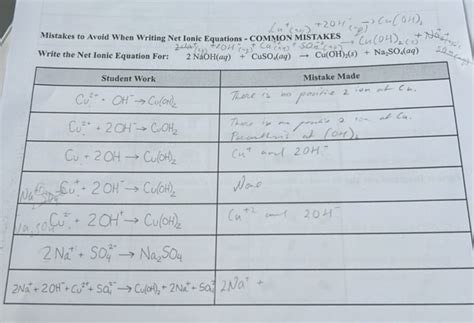 Cu⁺(aq) + 2OH⁻(aq) → Cu(OH)₂
Mistakes to Avoid When Writing Net Ionic Equations - COMMON MISTAKES
2Na⁺(aq) + 2OH⁻(aq) + Cu⁺(aq) + SO₄²⁻(aq) → Cu(OH)₂(s) + Na
Write the Net Ionic Equation For: 2 NaOH(aq) + CuSO₄(aq) → Cu(OH)₂(s) + Na₂SO₄(aq)
Student Work
Mistake Made
Cu²⁺ + OH⁻ → Cu(OH)₂
There is no positive 2 ion at Cu.
Cu²⁻ + 2OH⁻ → CuOH₂
There is no positive 2 ion at Cu.
Paranthesis at (OH)₂
Cu + 2OH → Cu(OH)₂
Cu⁺ and 2OH⁻
Cu²⁺ + 2OH⁻ → Cu(OH)₂
None
Cu²⁻ + 2OH⁺ → Cu(OH)₂
Cu⁺² and 2OH⁻
2Na⁺ + SO₄²⁻ → Na₂SO₄
2Na⁺ + 2OH⁻ + Cu²⁺ + SO₄²⁻ → Cu(OH)₂ + 2Na⁺ + SO₄²⁻
2Na⁺ +